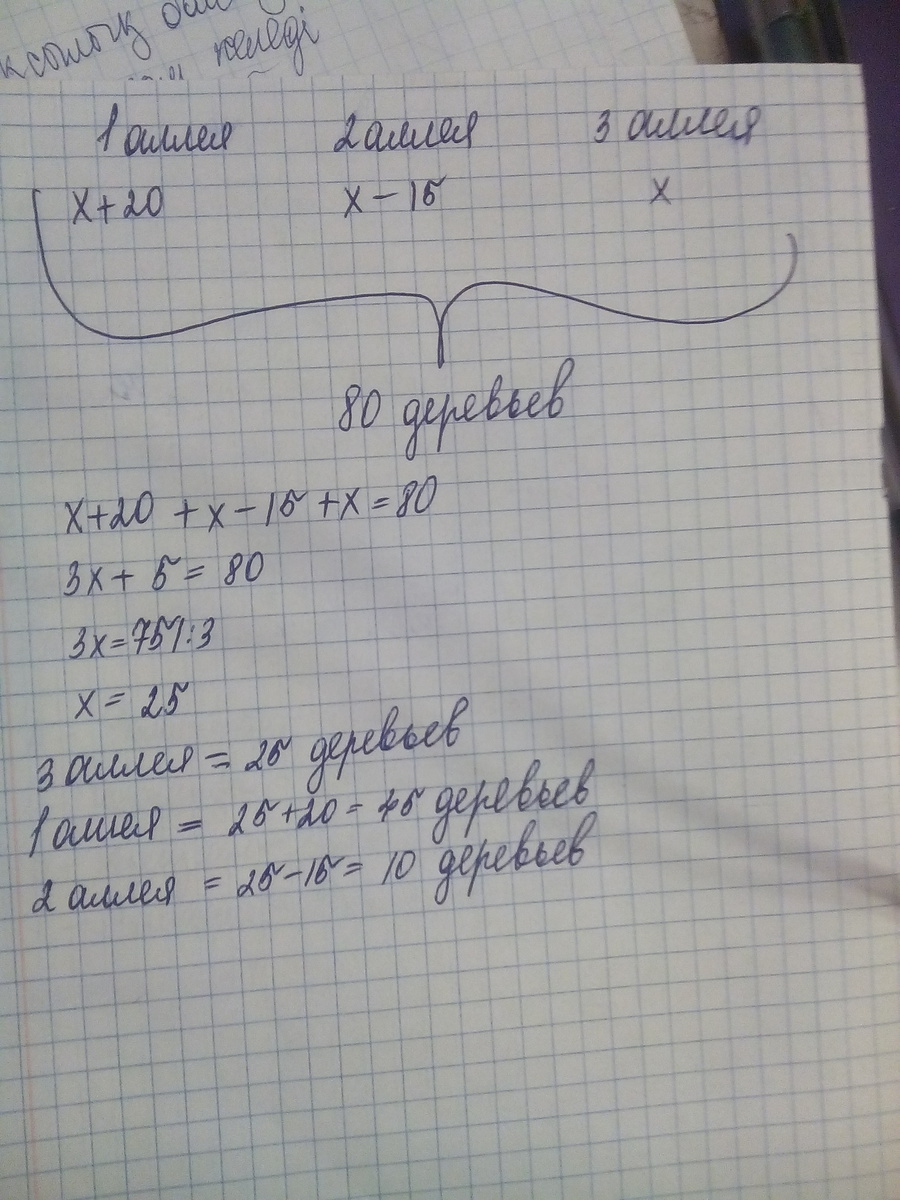 келеді
1 аллея 2 аллея 3 аллея
x+20 x-15 x
80 деревьев
x+20 +x-15 +x=80
3x+5=80
3x=75/:3
x=25
3 аллея = 25 деревьев
1 аллея = 25+20=45 деревьев
2 аллея = 25-15= 10 деревьев